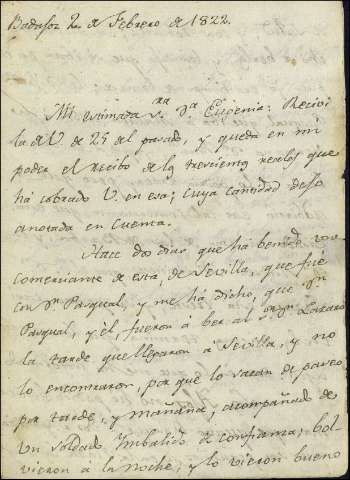 Badajoz 2 de Febrero de 1822.
Mi estimada S.ra D.a Eugenia: Recivi
la de V. de 25 del pasado, y queda en mi
poder el recibo de los trescientos reales que
ha cobrado V. en esa; cuya cantidad dejo
anotada en cuenta.
Hace dos dias que ha benido un
comerciante de esta, de Sevilla, que fue
con D.n Pasqual, y me ha dicho, que D.n
Pasqual, y èl, fueron à ber al S.or D.n Lazaro
la tarde que llegaron à Sevilla, y no
lo encontraron, por que lo sacan de paseo
por tarde, y mañana, acompañado de
un soldado Imbalido de confianza; bol-
vieron à la noche, y lo vieron bueno